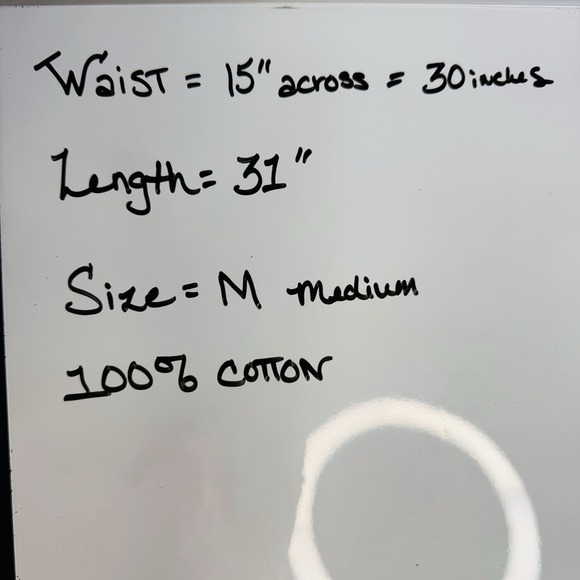 Waist = 15" across = 30 inches
Length = 31"
Size = M medium
100% COTTON